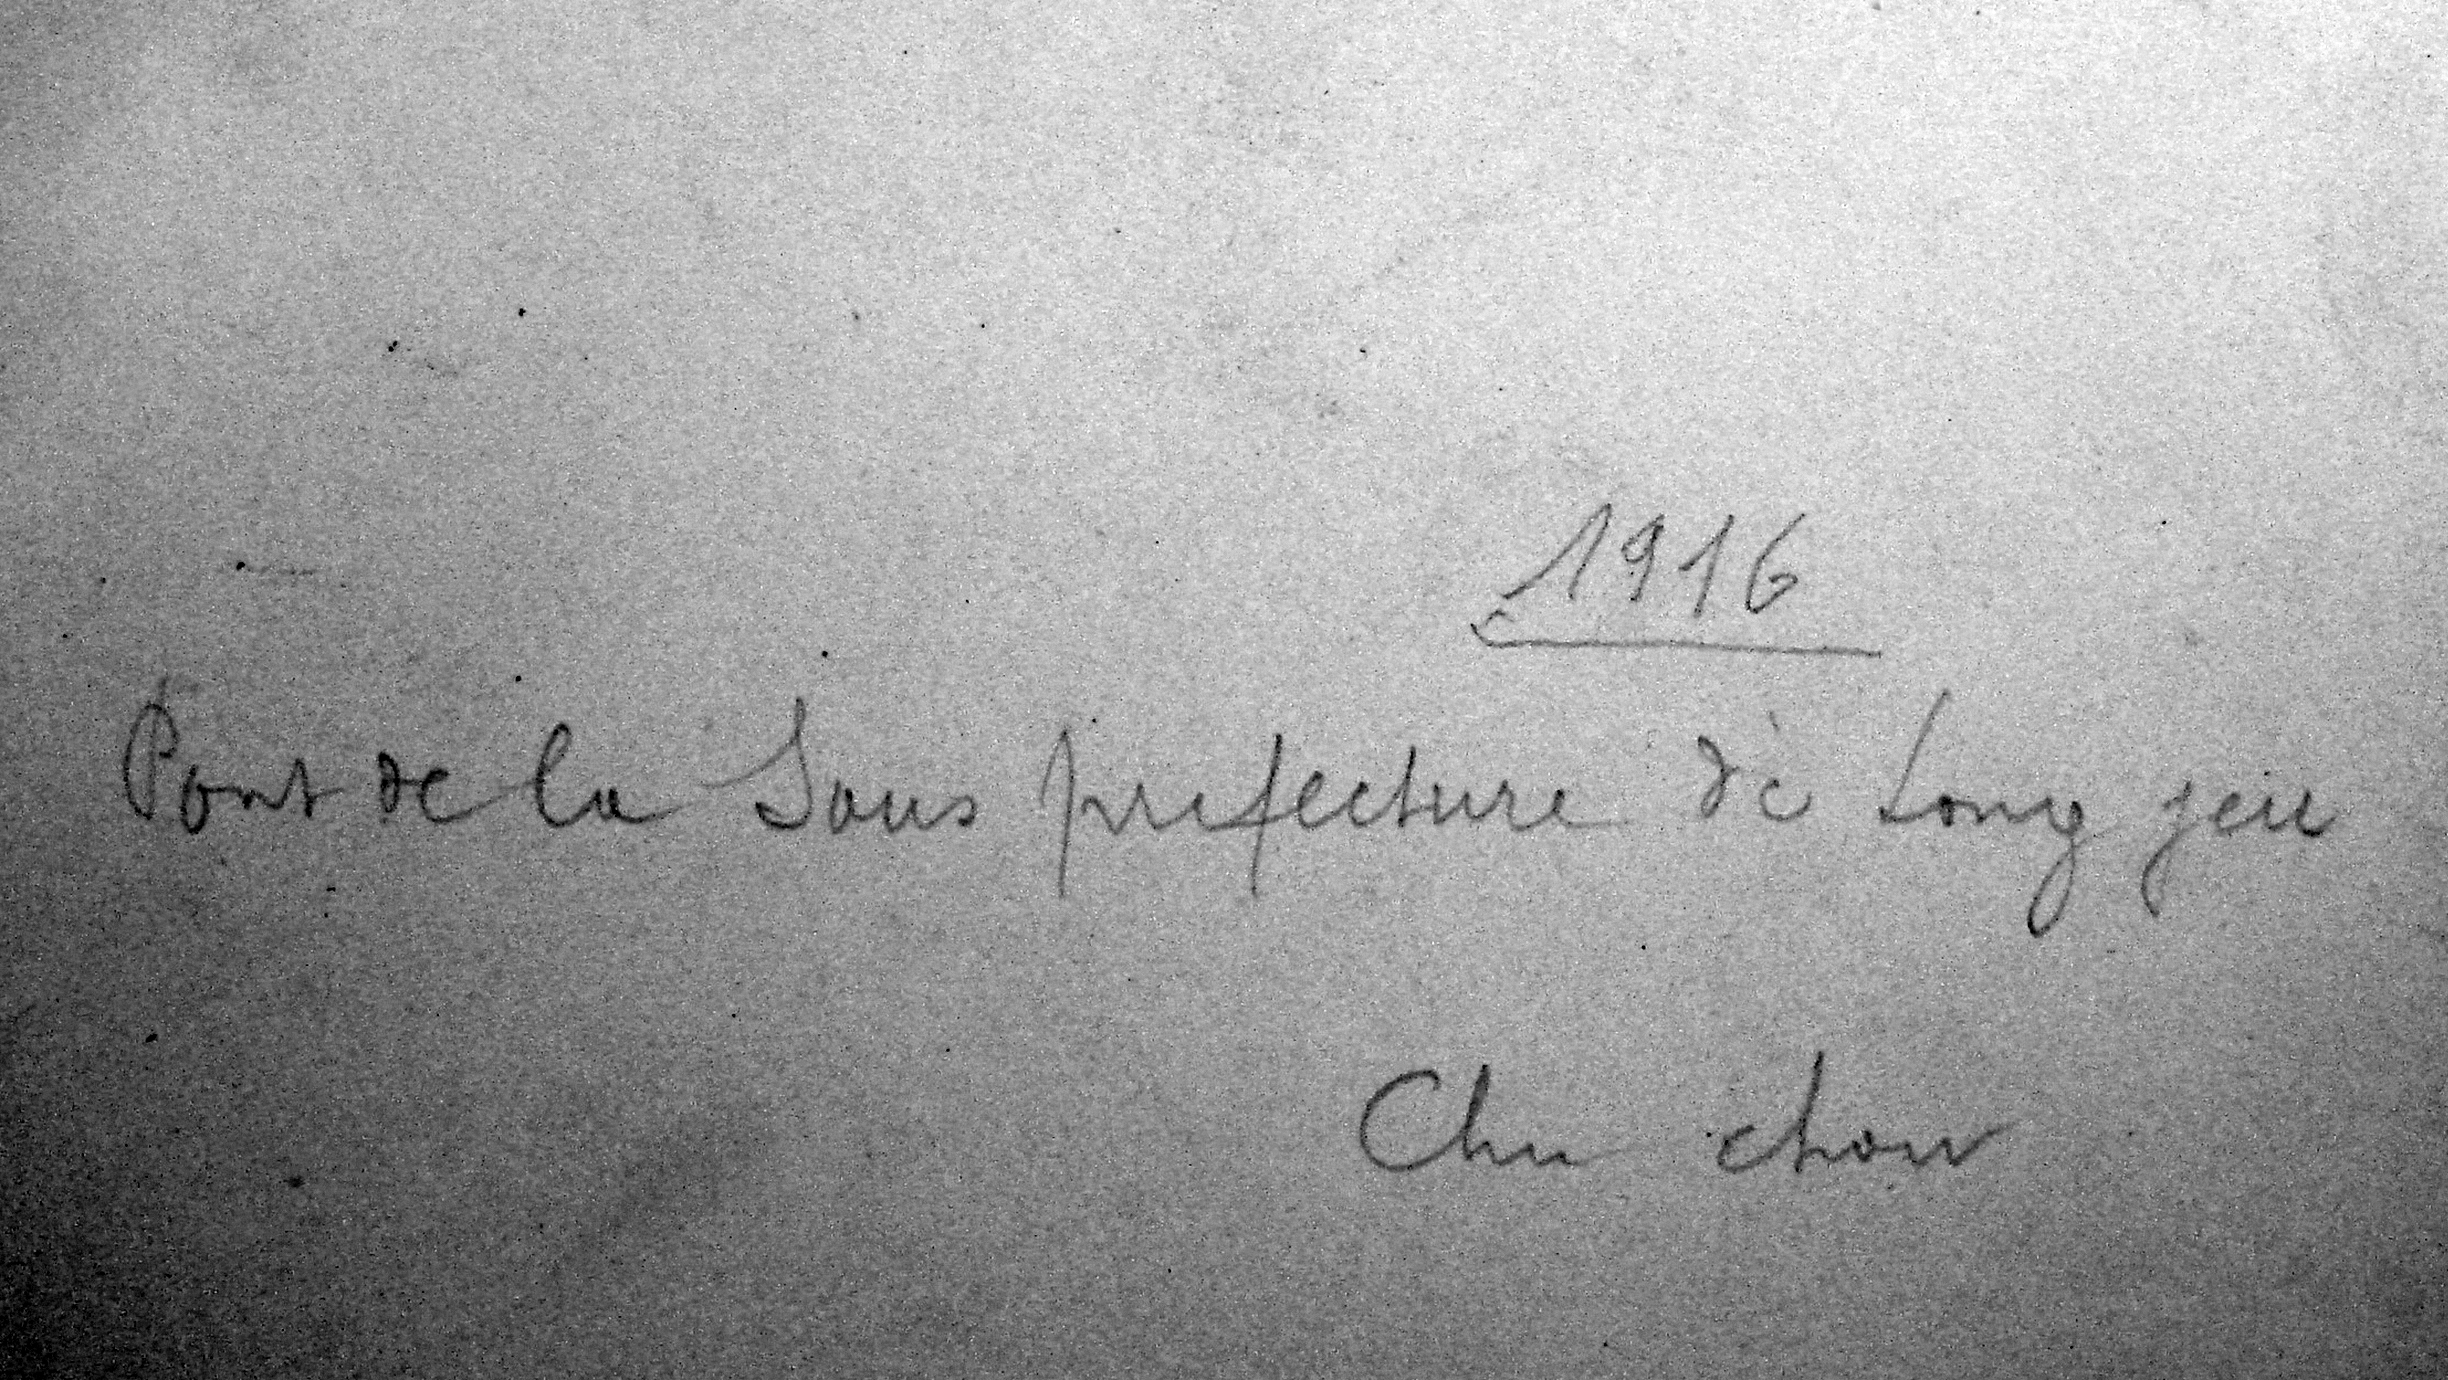 1916
Pont de la Sous prefecture de Long jeu
Chu chow